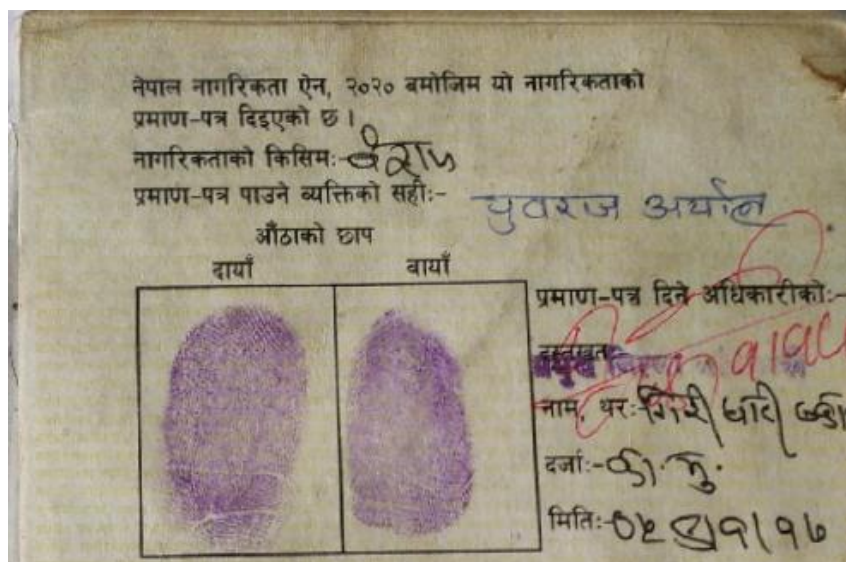 नेपाल नागरिकता ऐन, २०२० बमोजिम यो नागरिकताको
प्रमाण-पत्र दिइएको छ ।
नागरिकताको किसिम:- वंशज
प्रमाण-पत्र पाउने व्यक्तिको सही:- युवराज अर्याल
औंठाको छाप
दायाँ बायाँ
प्रमाण-पत्र दिने अधिकारीको:-
दस्तखत:-
नाम, थर:-
दर्जा:- का.मु.
मिति:-